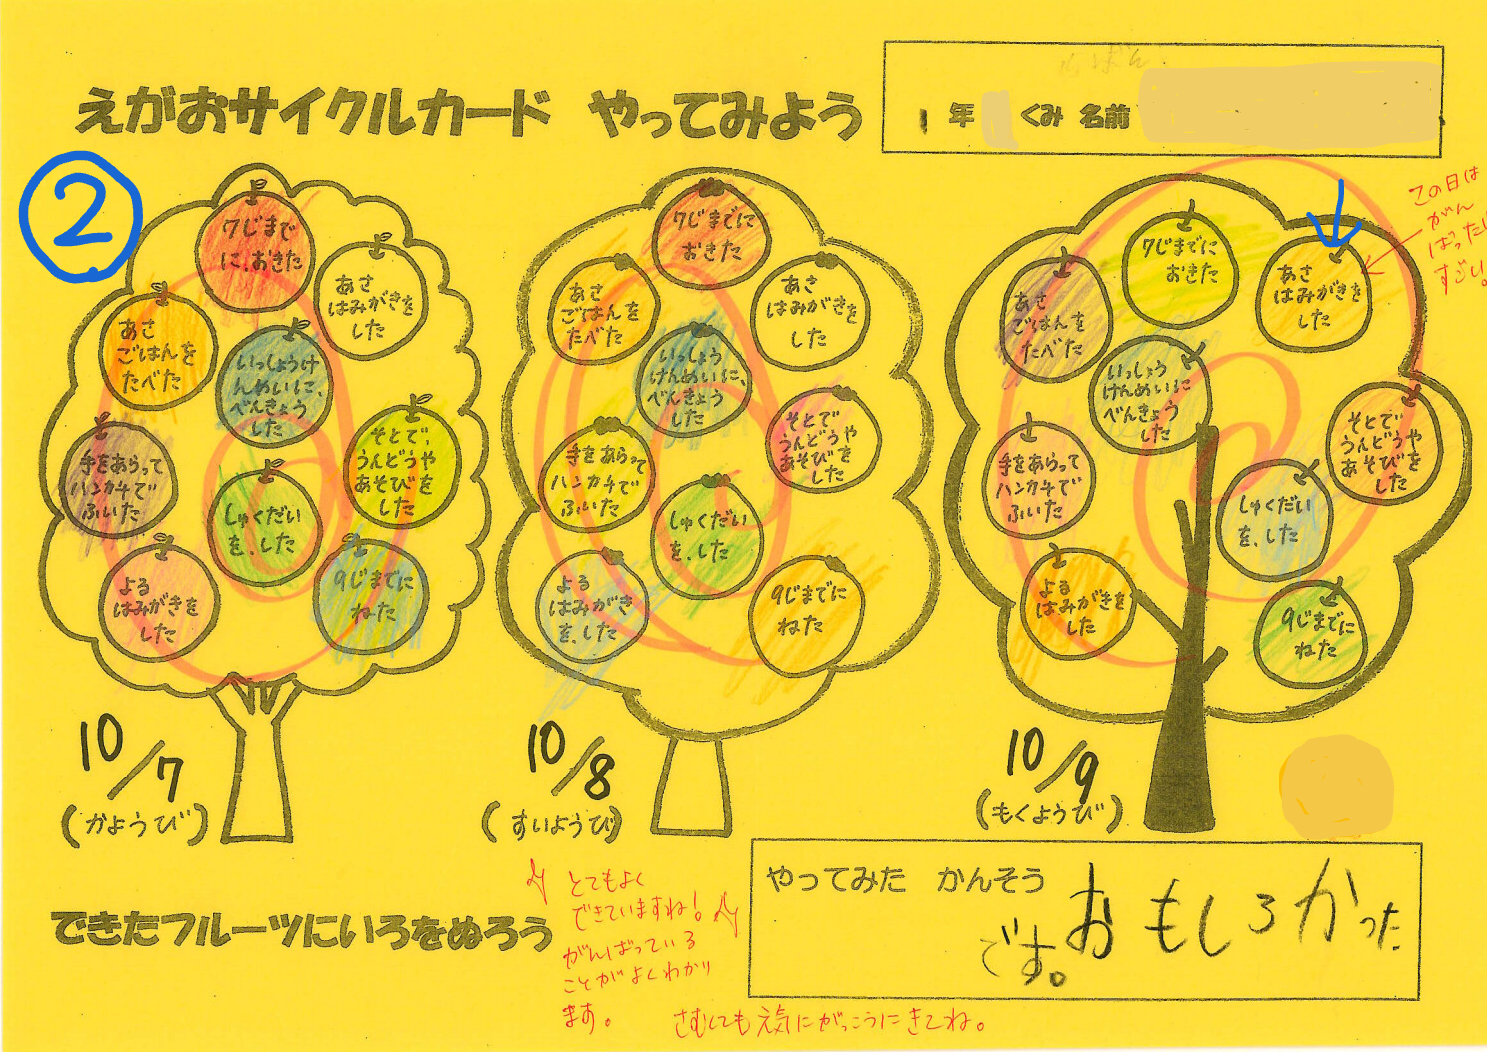 えがおサイクルカード やってみよう
1年 くみ 名前
②
7じまで
に、おきた
あさ
はみがきを
した
あさ
ごはんを
たべた
いっしょうけ
んめいに、
べんきょう
した
そとで、
うんどうや
あそびを
した
手をあらって
ハンカチで
ふいた
しゅくだい
を、した
よる
はみがきを
した
9じまでに
ねた
10/7
(かようび)
7じまでに
おきた
あさ
ごはんを
たべた
あさ
はみがきを
した
いっしょう
けんめいに、
べんきょう
した
そとで
うんどうや
あそびを
した
手をあらって
ハンカチで
ふいた
しゅくだい
を、した
よる
はみがき
を、した
9じまでに
ねた
10/8
(すいようび)
7じまでに
おきた
あさ
ごはんを
たべた
あさ
はみがきを
した
この日は
がん
ばったね
すごい。
いっしょう
けんめいに
べんきょう
した
そとで
うんどうや
あそびを
した
手をあらって
ハンカチで
ふいた
しゅくだい
を、した
よる
はみがきを
した
9じまでに
ねた
10/9
(もくようび)
できたフルーツにいろをぬろう
とてもよく
できていますね!
がんばっている
ことがよくわかり
ます。
さむくても元気にがっこうにきてね。
やってみた かんそう
おもしろかった
です。